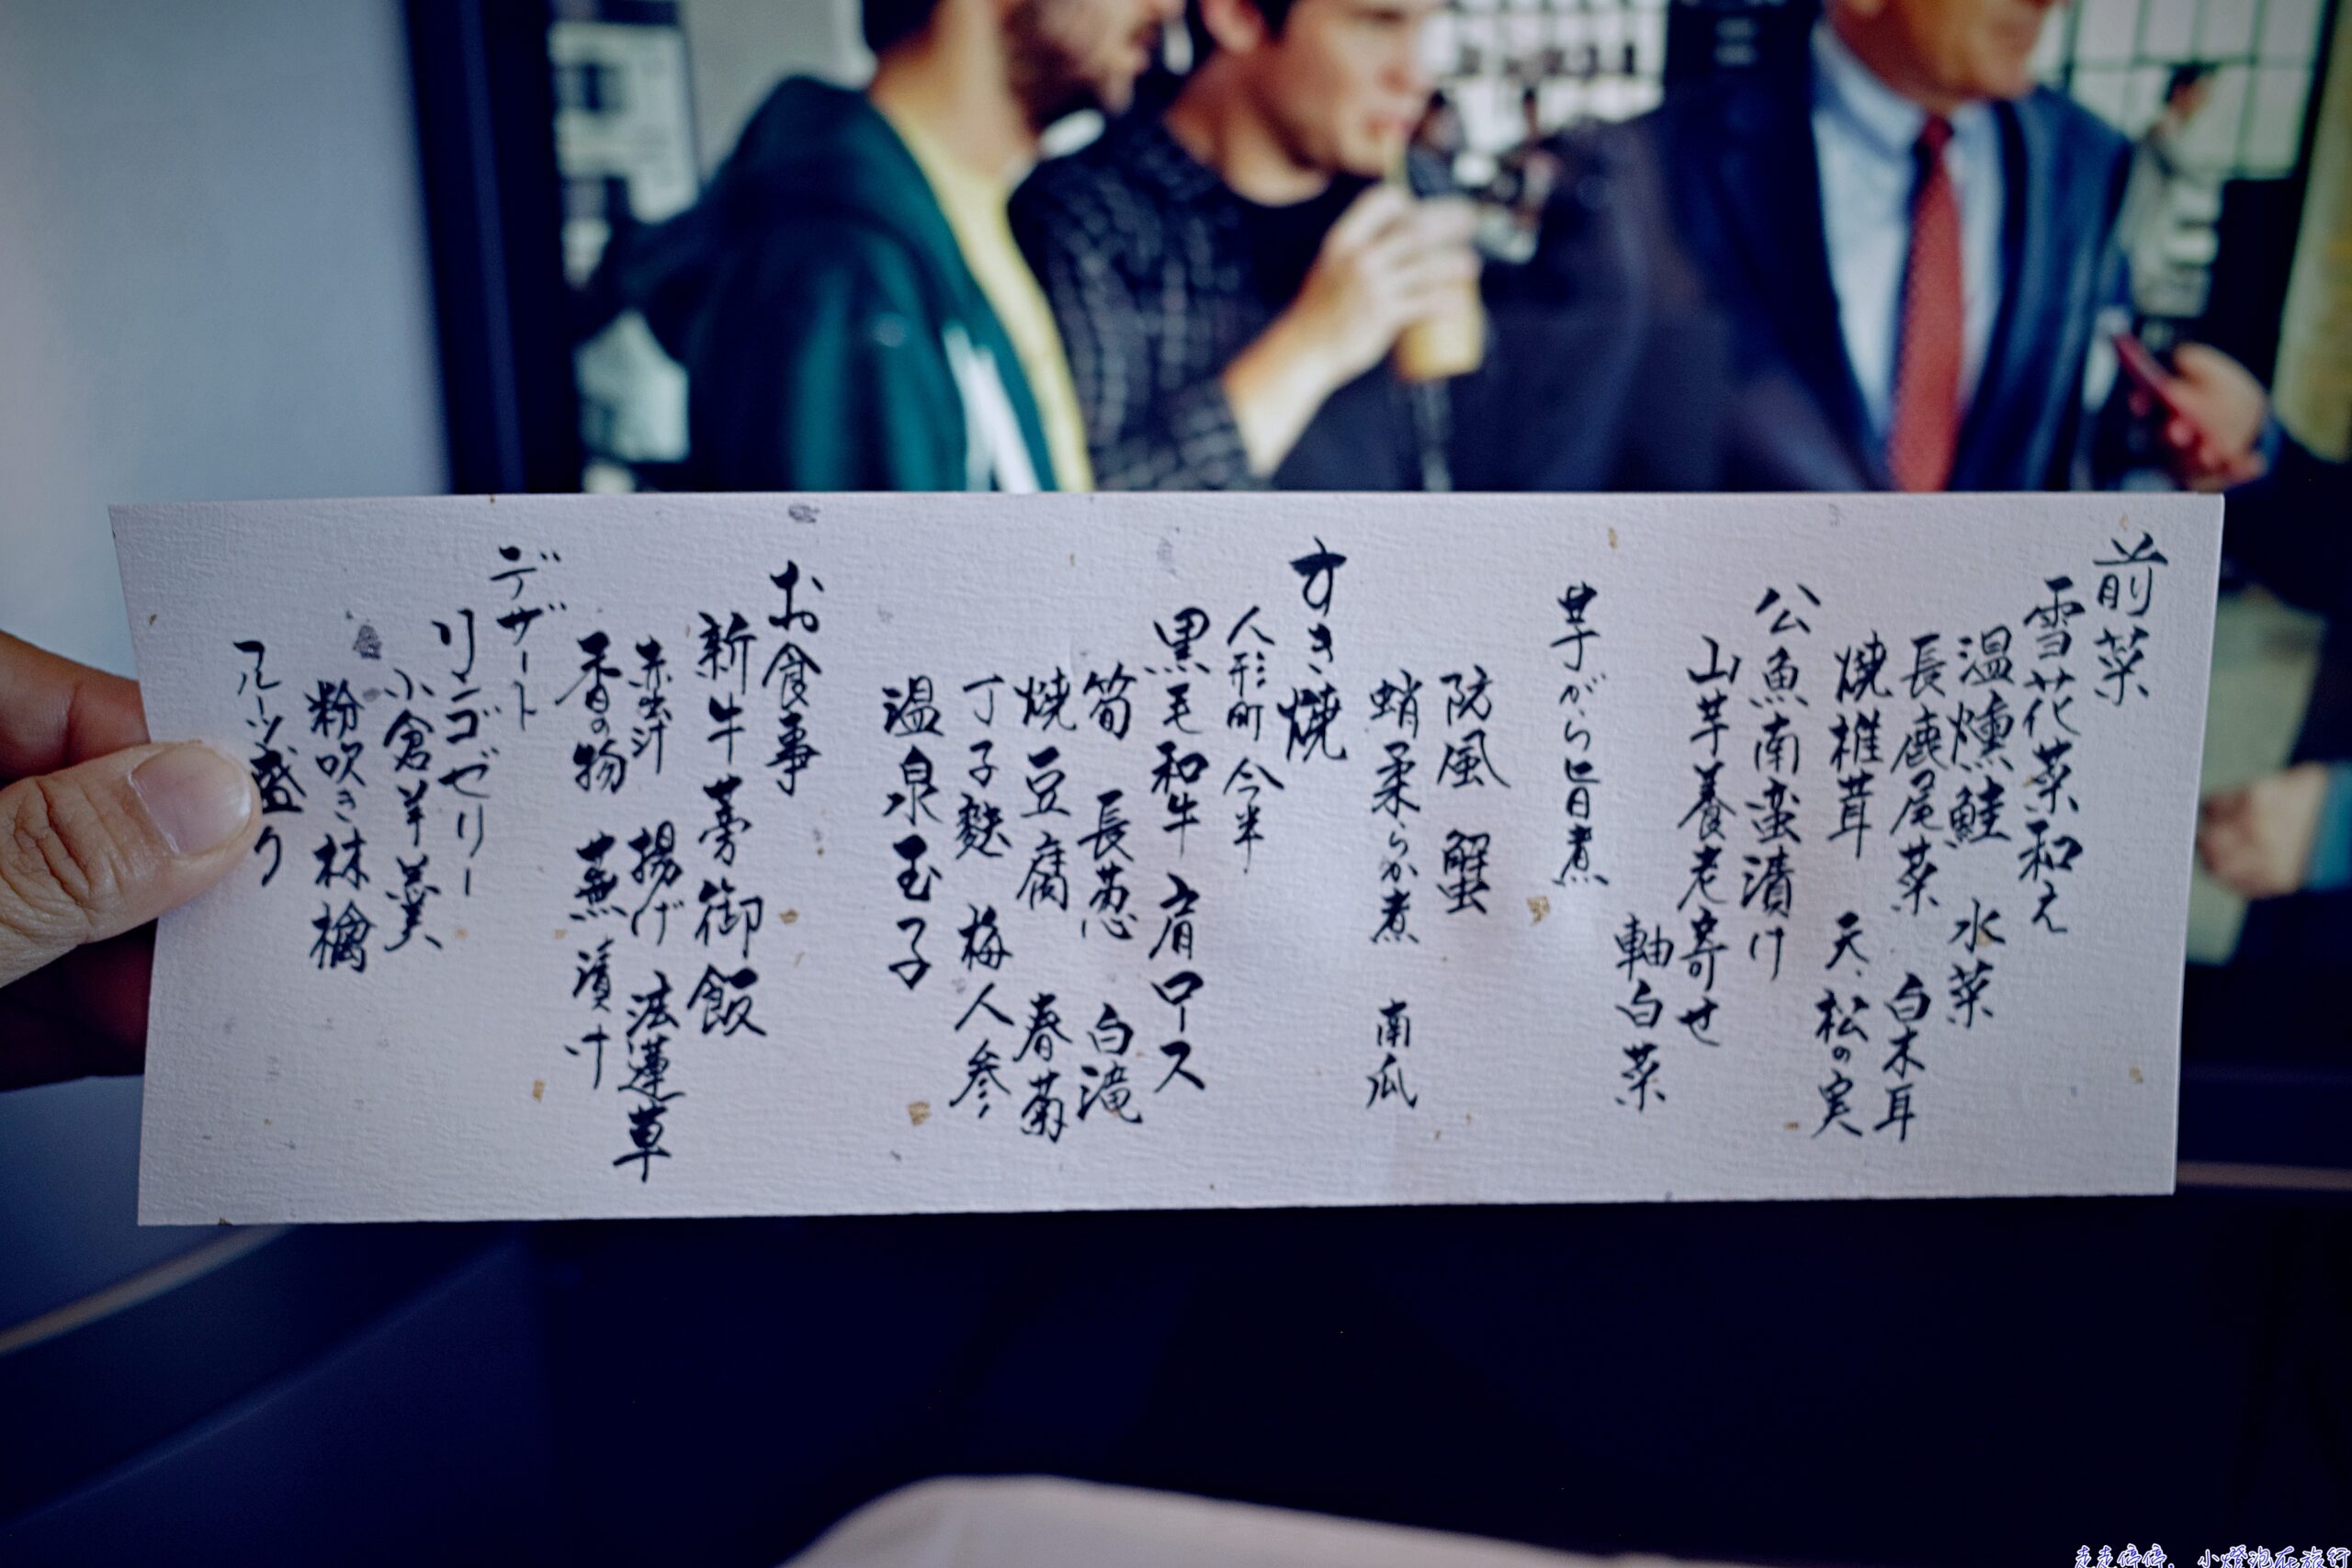 前菜
雪花菜和え
温燻鮭 水菜
長鹿尾菜 白木耳
焼椎茸 天、松の実
公魚南蛮漬け
山芋養老寄せ
軸白菜
芋がら旨煮
防風 蟹
蛸柔らか煮 南瓜
すき焼
人形町 今半
黒毛和牛 肩ロース
筍 長葱 白滝
焼豆腐 春菊
丁子麩 梅人参
温泉玉子
お食事
新牛蒡御飯
赤出汁 揚げ 法蓮草
香の物 蕪漬け
デザート
リンゴゼリー
小倉羊羹
粉吹き林檎
フルーツ盛り
走走停停,小燈泡在旅行